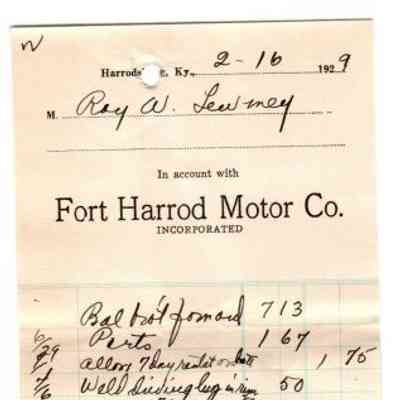 Harrodsb e, Ky., 2-16 1929
M. Roy W.
In account with
Fort Harrod Motor Co.
INCORPORATED
Bal bro't forward 7 13
6/29 Parts 1 67
allow 7 day rental on 1 75
Weld driving lug in rim 50